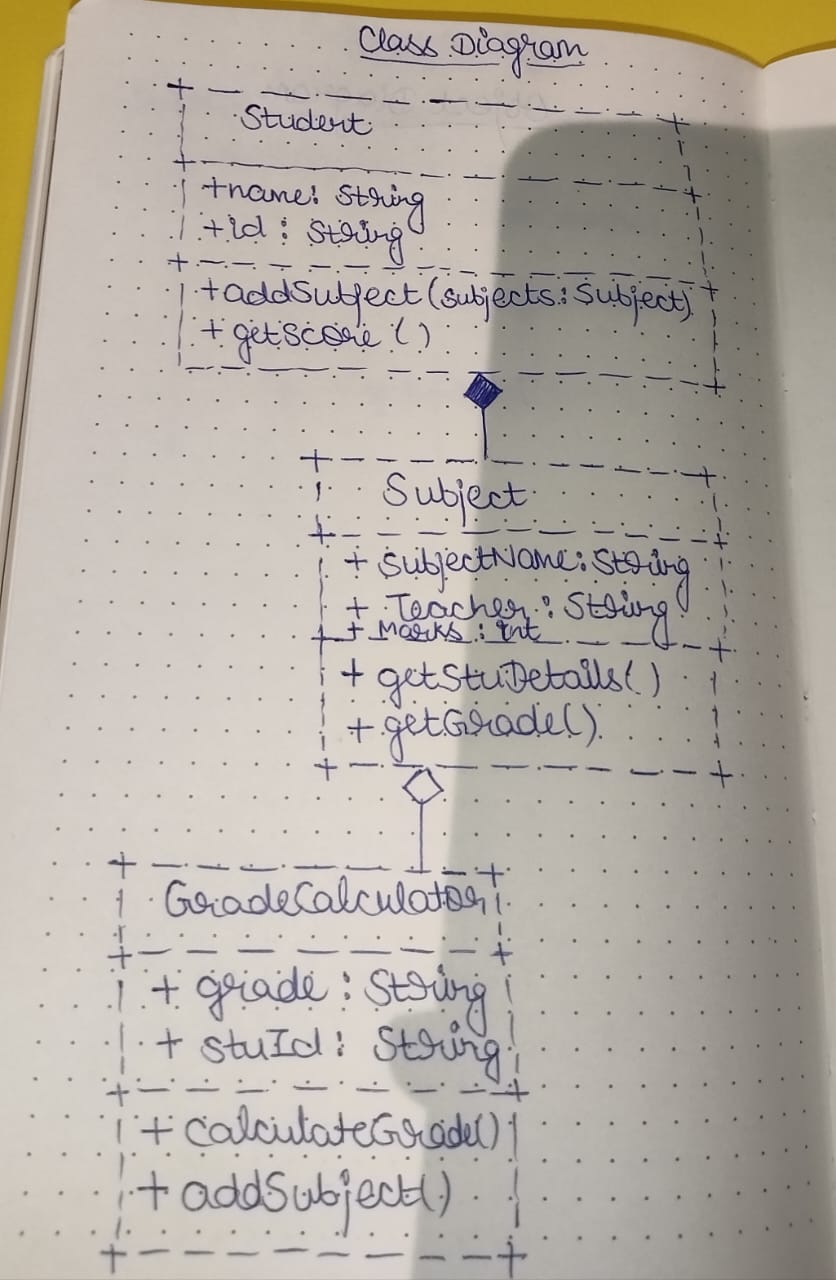 Class Diagram
Student
+name: String
+id: String
+addSubject(subjects: Subject)
+getScore()
Subject
+ SubjectName: String
+ Teacher: String
+ Marks: int
+ getStuDetails()
+ getGrade()
GradeCalculator
+ grade: String
+ stuId: String
+ calculateGrade()
+ addSubject()